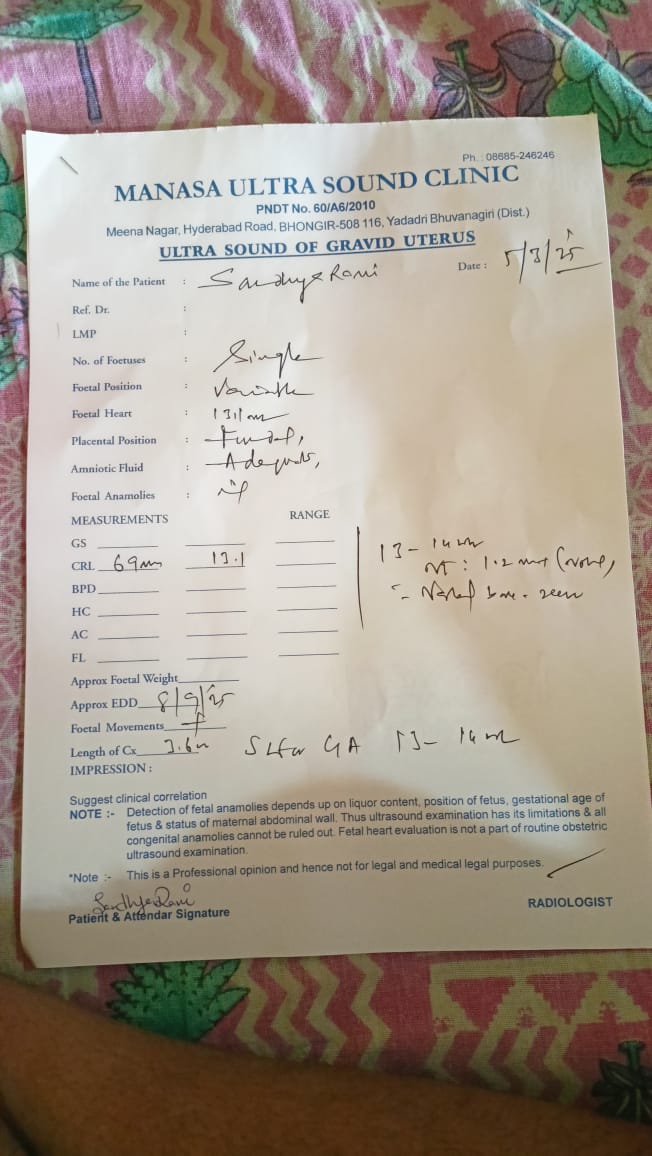 Ph. : 08685-246246
MANASA ULTRA SOUND CLINIC
PNDT No. 60/A6/2010
Meena Nagar, Hyderabad Road, BHONGIR-508 116, Yadadri Bhuvanagiri (Dist.)
ULTRA SOUND OF GRAVID UTERUS
Date : 5/3/25
Name of the Patient : Sandhya Rani
Ref. Dr. :
LMP :
No. of Foetuses : Single
Foetal Position : Variable
Foetal Heart :
Placental Position : Fundal,
Amniotic Fluid : Adequate,
Foetal Anamolies :
MEASUREMENTS RANGE
GS
CRL 69mm 13.1
BPD
HC
AC
FL
13 - 14 wk
NT : 1.2 mm
Nasal bone - seen
Approx Foetal Weight
Approx EDD 8/9/25
Foetal Movements +
Length of Cx 3.6
GA 13 - 14 wk
IMPRESSION :
Suggest clinical correlation
NOTE :- Detection of fetal anamolies depends up on liquor content, position of fetus, gestational age of
fetus & status of maternal abdominal wall. Thus ultrasound examination has its limitations & all
congenital anamolies cannot be ruled out. Fetal heart evaluation is not a part of routine obstetric
ultrasound examination.
*Note :- This is a Professional opinion and hence not for legal and medical legal purposes.
Sandhya Rani
Patient & Attendar Signature
RADIOLOGIST